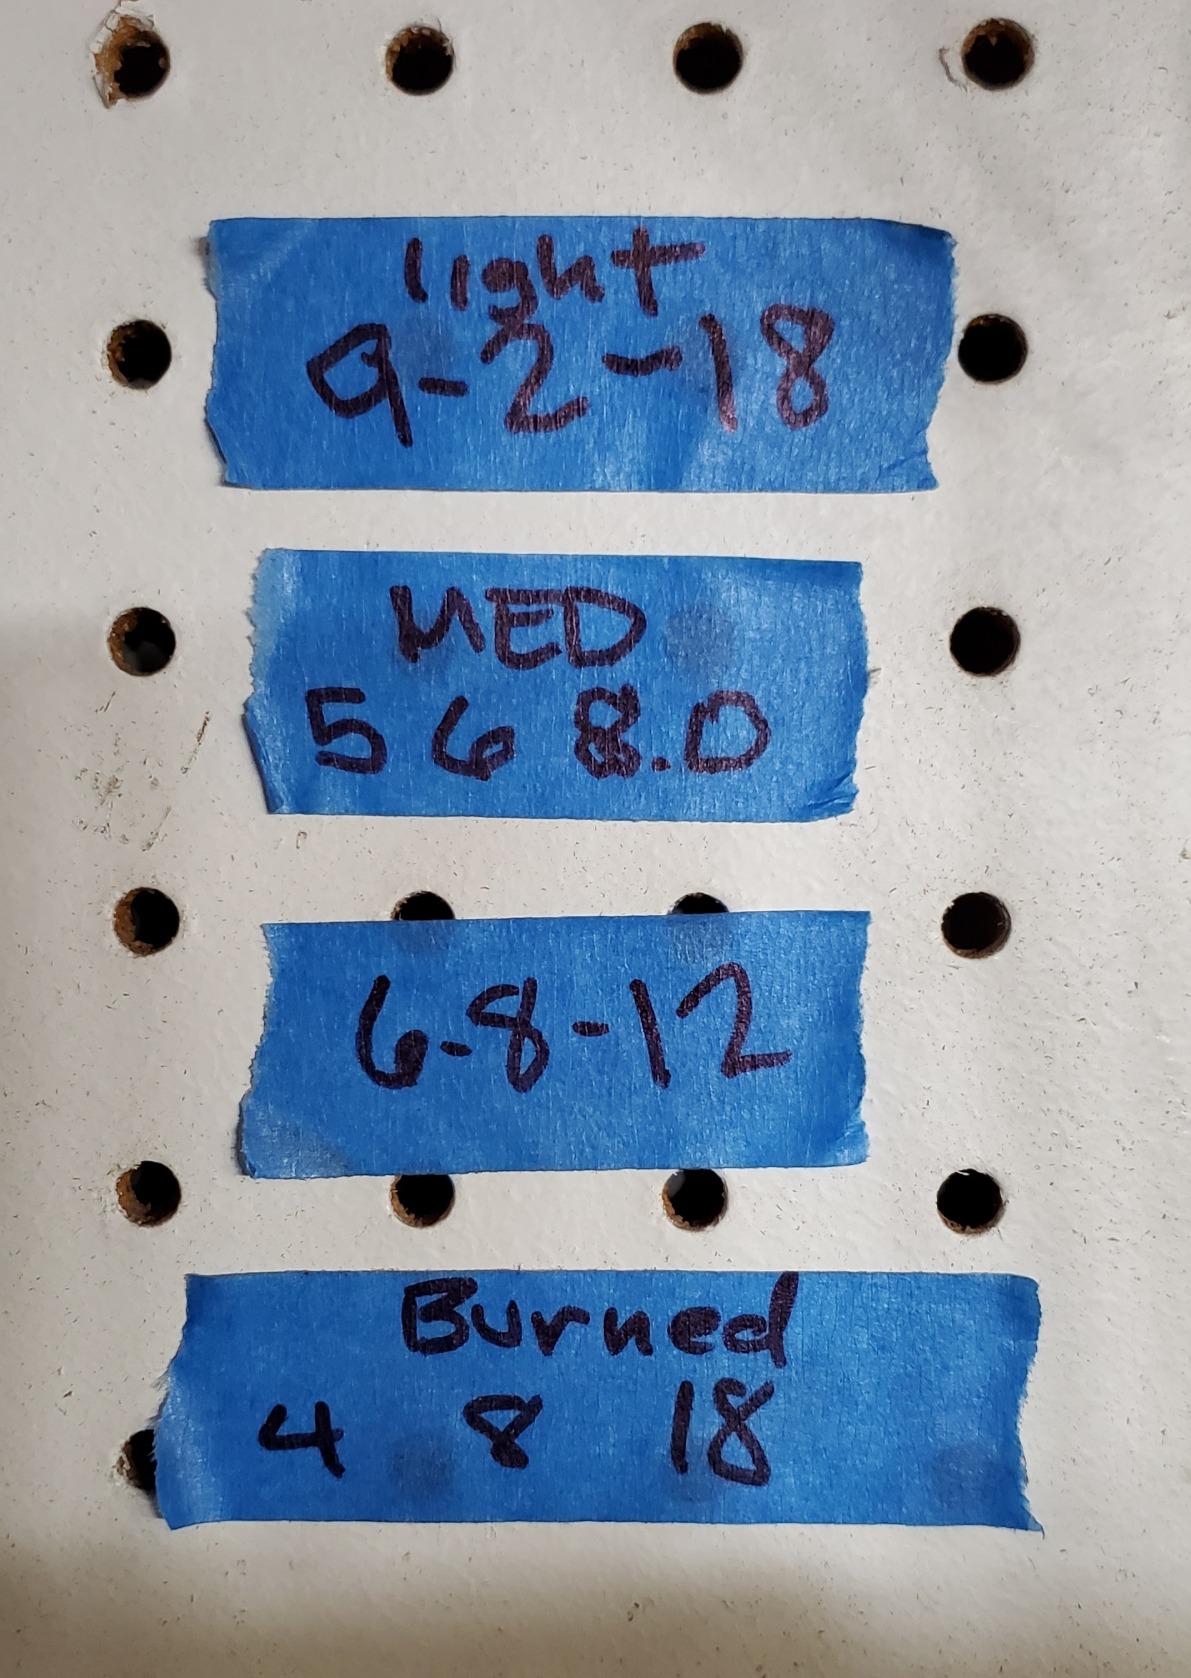 light
9-2-18
MED
5 6 8.0
6-8-12
Burned
4 8 18